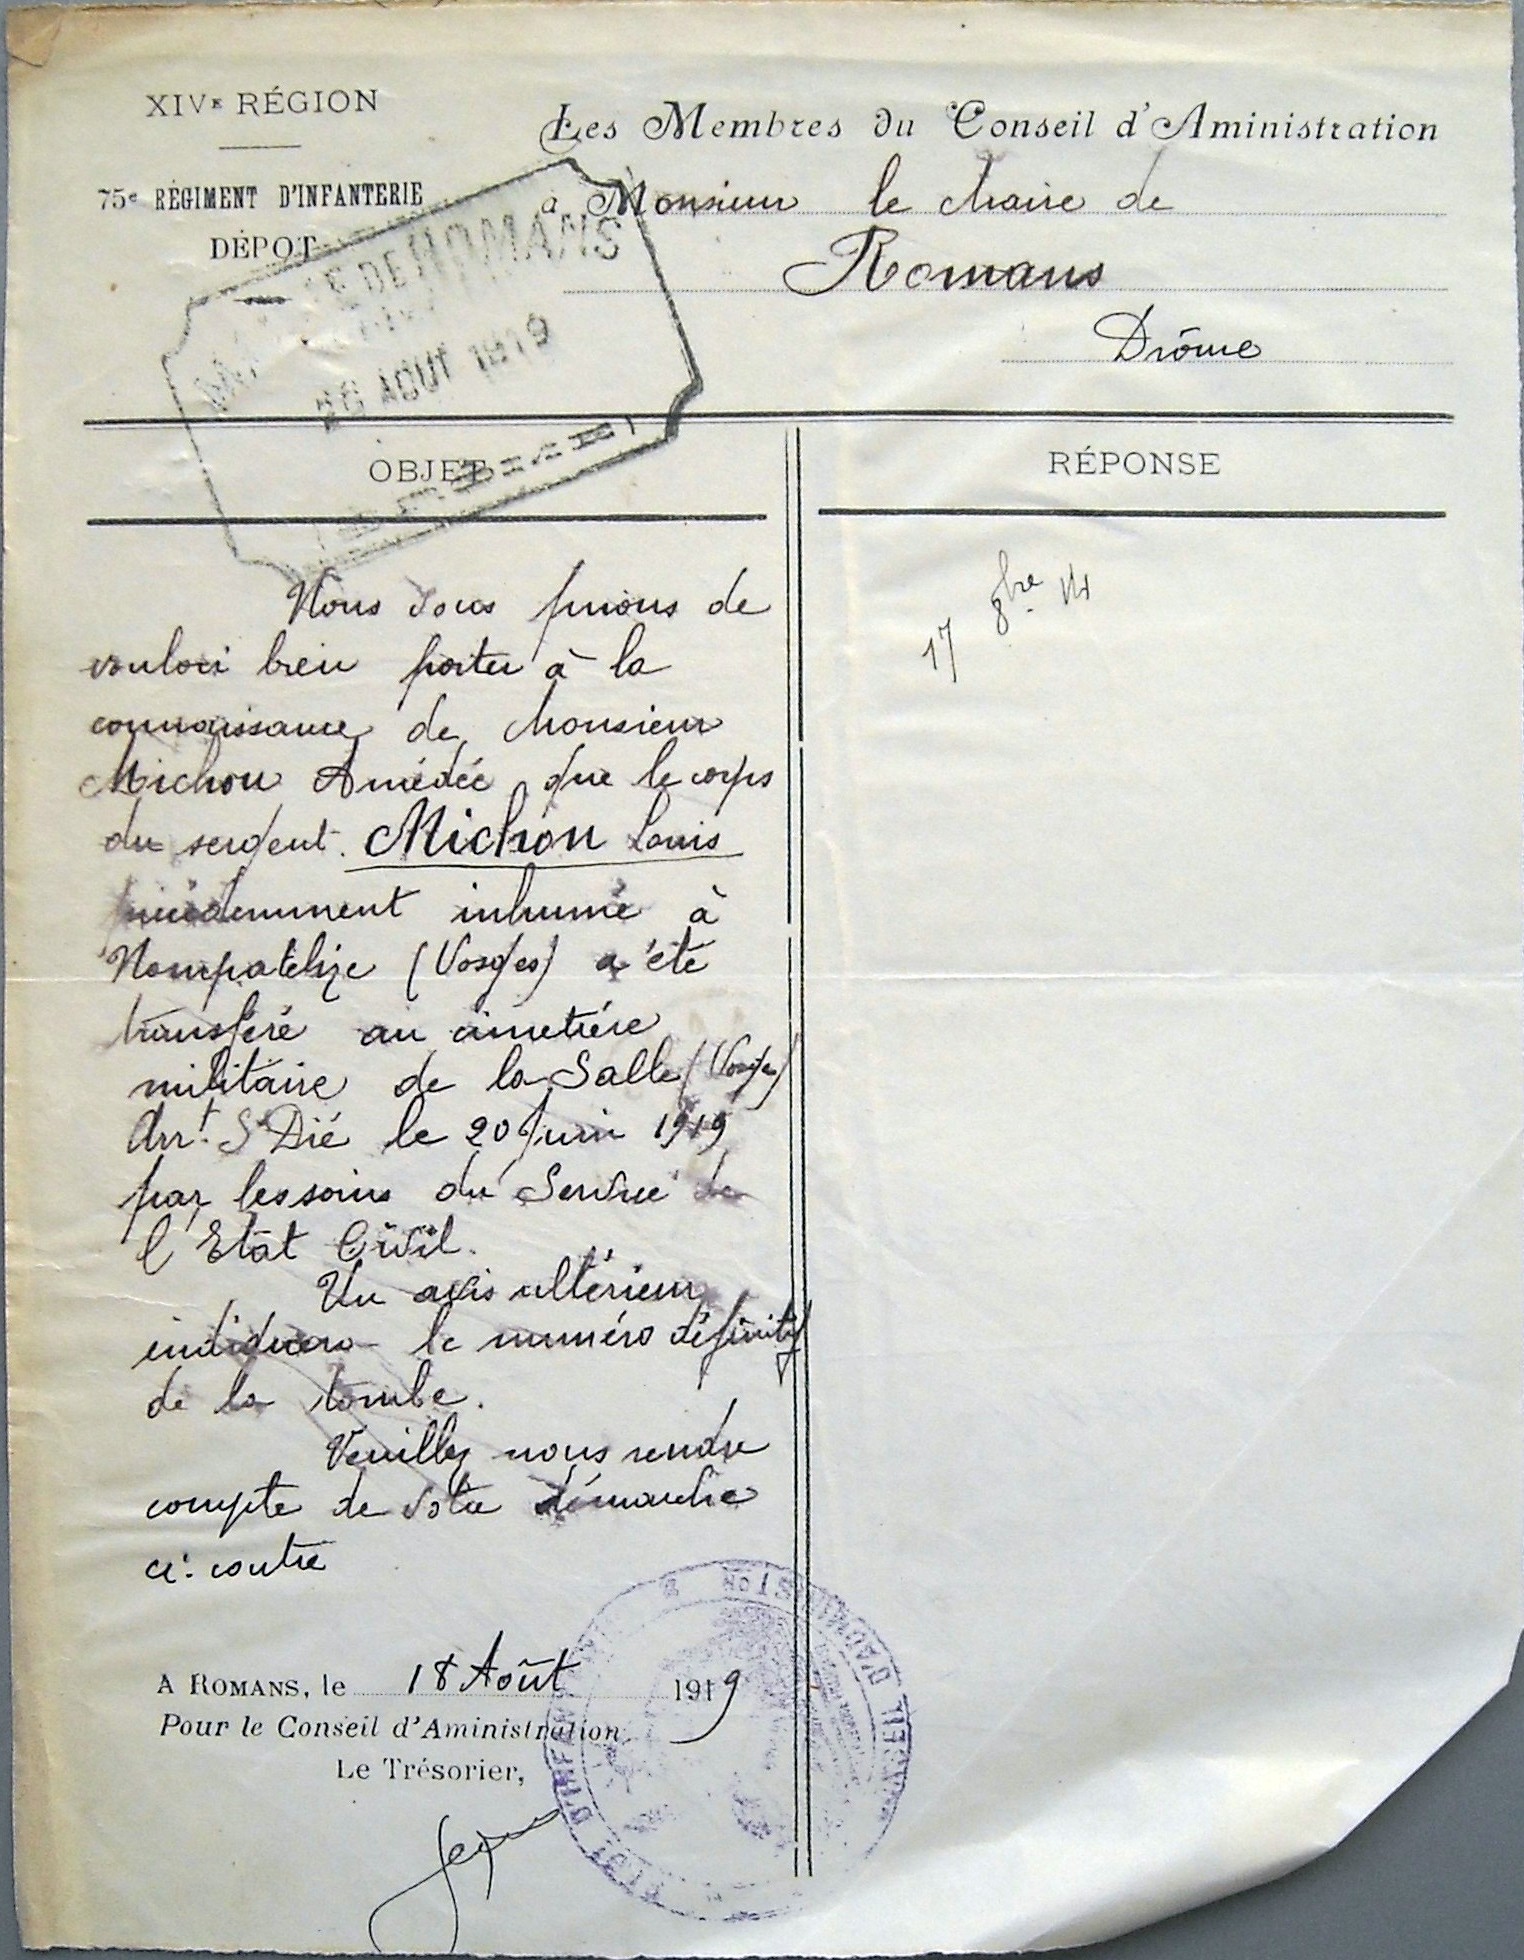 XIVᴱ RÉGION
75ᵉ RÉGIMENT D'INFANTERIE
DÉPOT
Les Membres du Conseil d'Aministration
à Monsieur le Maire de
Romans
Drôme
DE ROMANS
AOUT 1919
OBJET
RÉPONSE
Nous vous prions de
vouloir bien porter à la
connaissance de Monsieur
Michon Amédée que le corps
du sergent Michon Louis
précédemment inhumé à
Nompatelize (Vosges) a été
transféré au cimetière
militaire de la Salle (Vosges)
Arrᵗ. Sᵗ Dié le 20 Juin 1919
par les soins du Service de
l'Etat Civil.
Un avis ultérieur
indiquera le numéro définitif
de la tombe.
Veuillez nous rendre
compte de votre démarche
ci-contre
17 8bre 14
A ROMANS, le 18 Août 1919
Pour le Conseil d'Aministration
Le Trésorier,
CONSEIL D'ADMINISTRATION
D'INFANTERIE